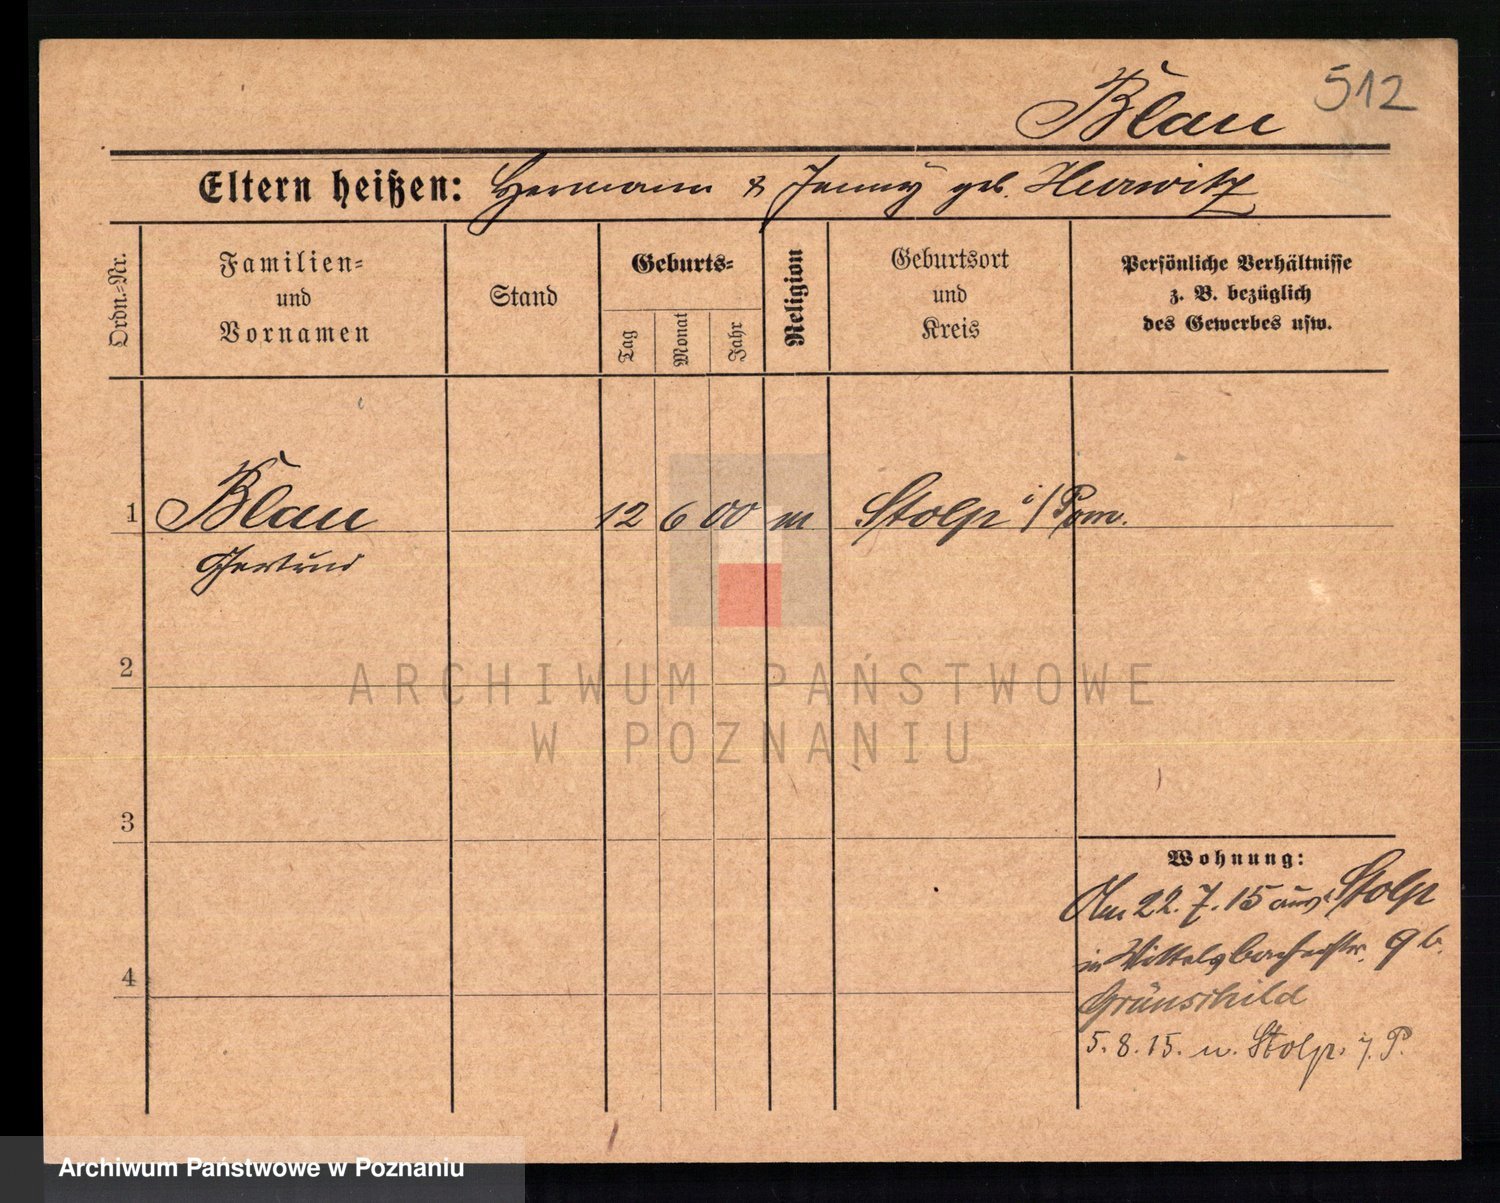 Blau 512
Eltern heißen: Hermann & Jenny geb. Hurwitz
Ordn.-Nr.
Familien-
und
Vornamen
Stand
Geburts-
Tag
Monat
Jahr
Religion
Geburtsort
und
Kreis
Persönliche Verhältnisse
z. B. bezüglich
des Gewerbes usw.
1 Blau 12 6 00 m Stolp i/Pom.
Gertrud
2
ARCHIWUM PAŃSTWOWE
W POZNANIU
3
Wohnung:
Am 22. 7. 15 aus Stolp
in Wittelsbacherstr. 9 b.
Grünschild
4
5. 8. 15. n. Stolp i. P.
Archiwum Państwowe w Poznaniu